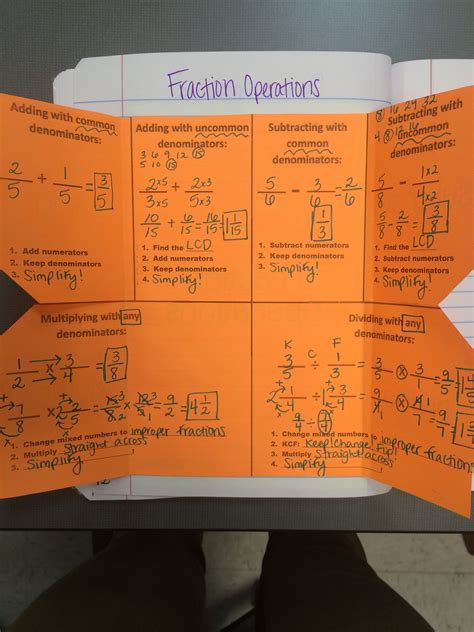 Fraction Operations
Adding with common
denominators:
2/5 + 1/5 = 3/5
1. Add numerators
2. Keep denominators
3. Simplify!
Adding with uncommon
denominators:
3 6 9 12 15
5 10 15
2×5/3×5 + 2×3/5×3
10/15 + 6/15 = 16/15 = 1 1/15
1. Find the LCD
2. Add numerators
3. Keep denominators
4. Simplify!
Subtracting with
common
denominators:
5/6 - 3/6 = 2/6
1/3
1. Subtract numerators
2. Keep denominators
3. Simplify!
8 16 24 32
Subtracting with
4 8 12 16
uncommon
denominators:
5/8 - 1×2/4×2
5/8 - 2/8 = 3/8
1. Find the LCD
2. Subtract numerators
3. Keep denominators
4. Simplify!
Multiplying with any
denominators:
1/2 × 3/4 = 3/8
= 9/2 = 4 1/2
1. Change mixed numbers to improper fractions
2. Multiply straight across
3. Simplify
Dividing with any
denominators:
K C F
3/5 ÷ 1/3 = 3/5 × 3/1 = 9/5 =
2 1/4 ÷ 1 3/4
9/4 ÷
1. Change mixed numbers to improper fractions
2. KCF: Keep Change Flip
3. Multiply straight across
4. Simplify